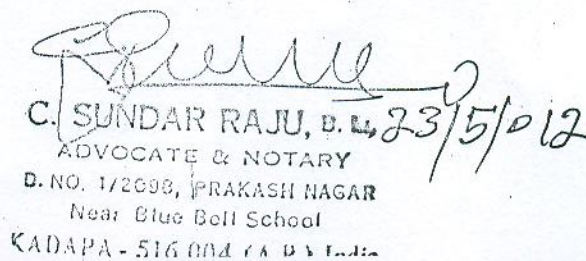 C. SUNDAR RAJU, B. L, 23/5/2012
ADVOCATE & NOTARY
D. NO. 1/2098, PRAKASH NAGAR
Near Blue Bell School
KADAPA - 516 004 (A.P.) India